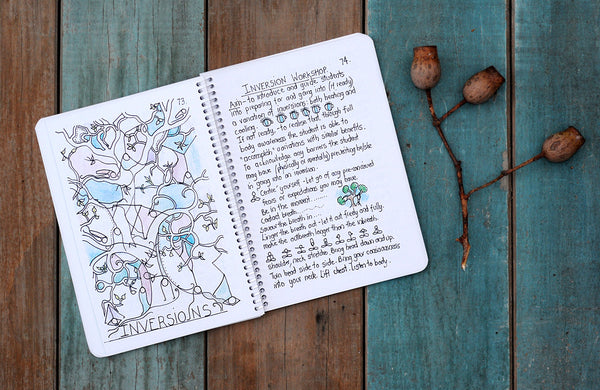 73
INVERSIONS
74.
INVERSION WORKSHOP
Aim - to introduce and guide students
into preparing for and going into (if ready)
a variation of inversions: both heating and
cooling.
If not ready, - to realise that through full
body awareness the student is able to
'accomplish' variations with similar benefits.
To acknowledge any barriers the student
may have (physically or mentally) preventing
in going into an inversion.
'Centre' yourself - let go of any pre-conceived
fears or expectations you may have.
Be in the moment.....
Control breath.....
Savour the breath in.....
Linger the breath out - let it out freely and fully.
make the outbreath longer than the inbreath.
shoulder, neck stretches. Bring head down and up.
Turn head side to side. Bring your consciousness
into your neck. Lift chest. Listen to body.